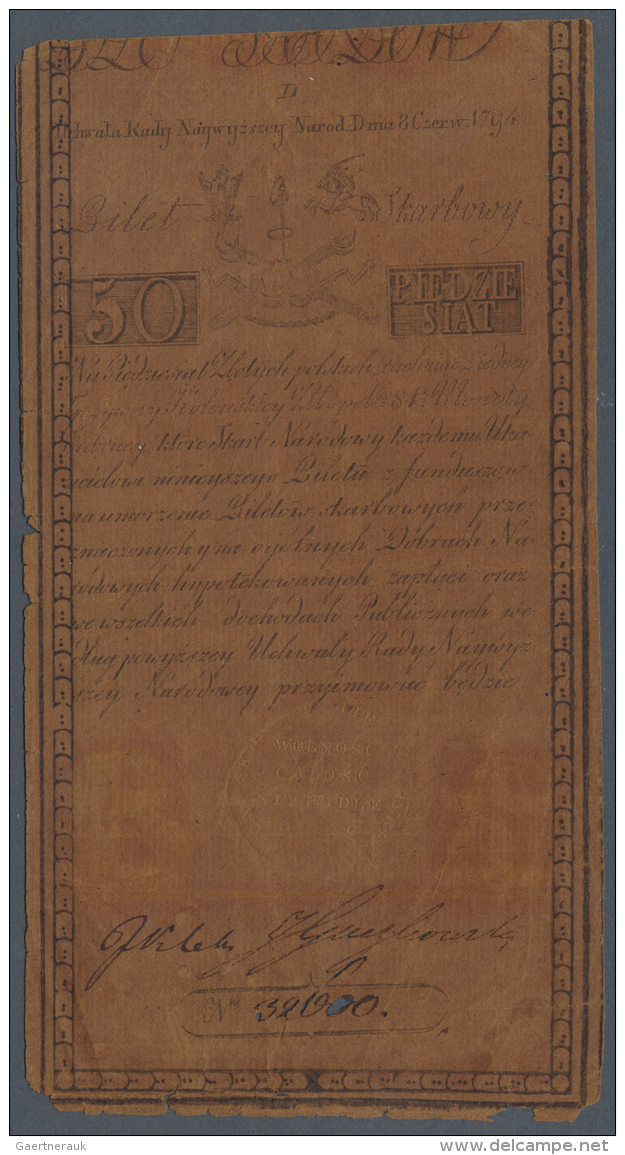 D
Uchwała Rady Naywyższey Narod: Dnia 8 Czerw: 1794
Bilet Skarbowy
50 PIEDZIE
SIAT
Na Piędziesiąt Złotych polskich
Skarb Narodowy każdemu Uka-
zicielowi ninieyszego Biletu z funduszow
na umorzenie Biletow skarbowych prze-
znaczonych y na ogolnych Dobrach Na-
rodowych hypotekowanych zapłaci oraz
we wszelkich dochodach Publicznych we-
dług powyższey Uchwały Rady Naywyż-
szey Narodowey przyimować będzie
WOLNOSC
CAŁOSC
NIEPODLE
No 32000.
Gaertnerauk
delcampe.net